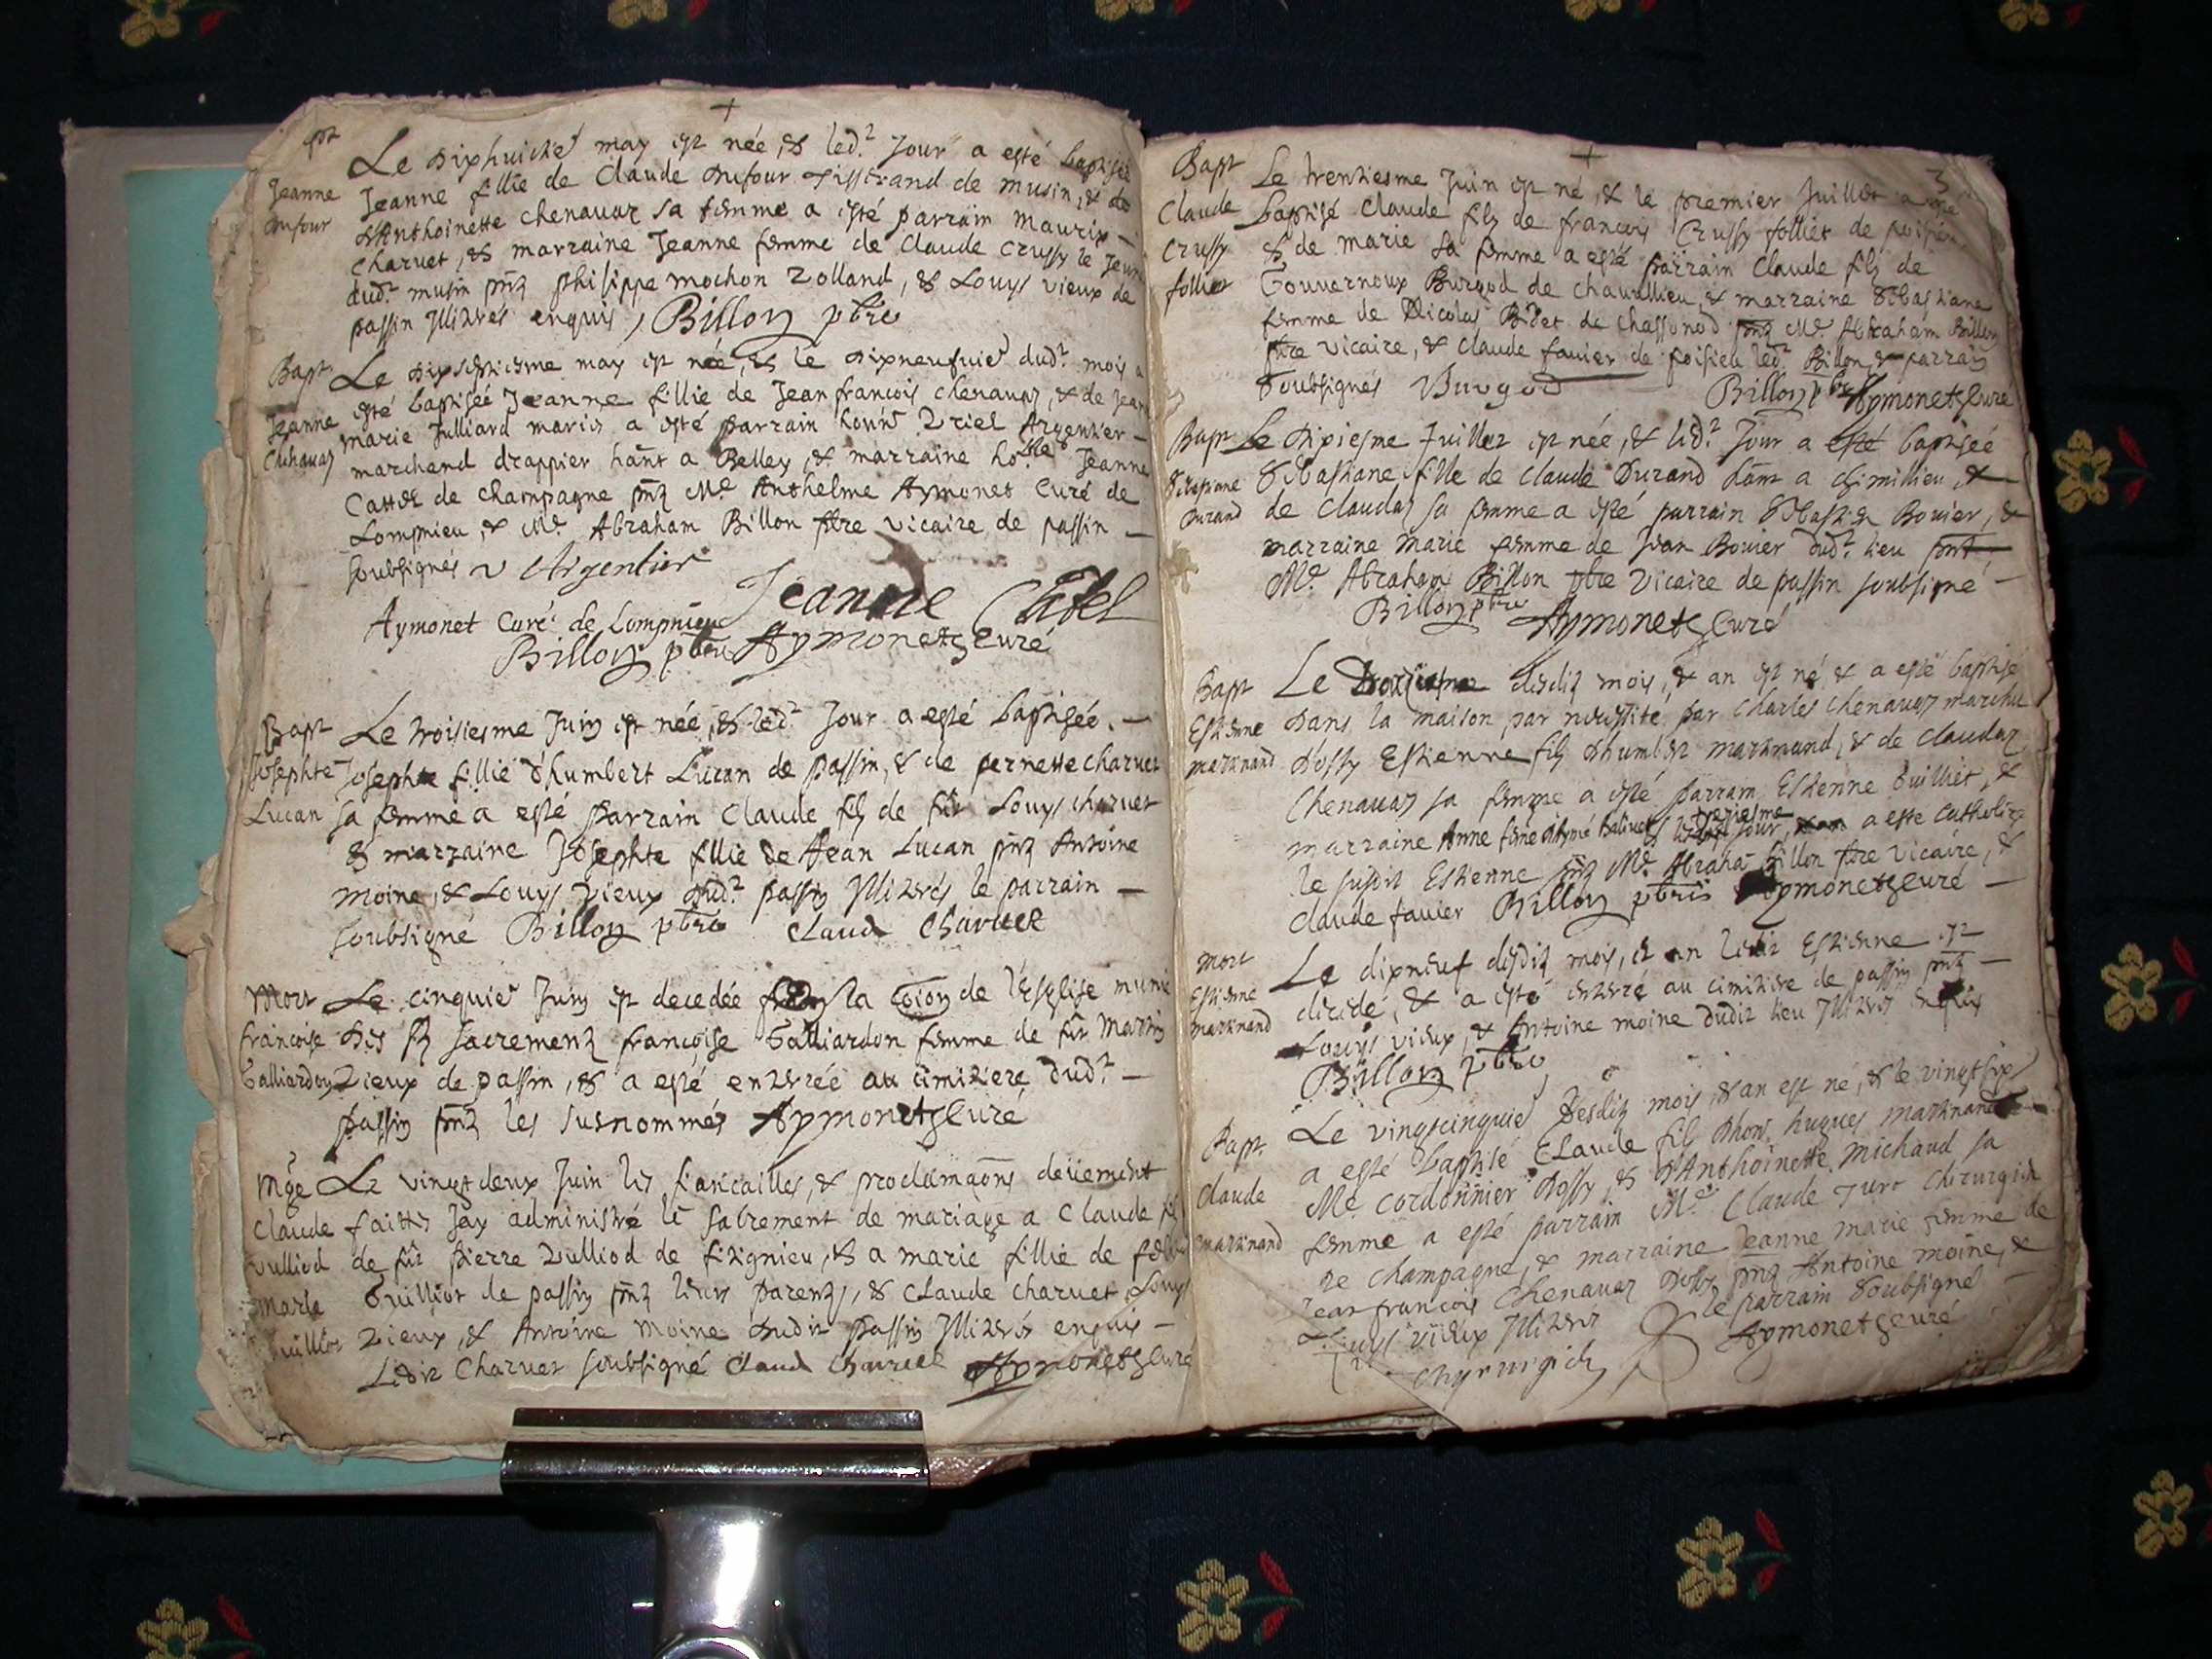 +
pt
Jeanne
dufour
Le dixhuictie may est née, & led.t Jour a esté baptisée
Jeanne fillie de Claude Dufour Tisserand de musin, & de
d'Anthoinette chenauaz sa femme a esté parrain Maurix —
Charuet, & marraine Jeanne femme de Claude Crussy le Jeune
dud.t musin pñz philippe mochon Rolland, & Louys vieux de
passin Illitrés enquis, Billon pbre
Bapt
Jeanne
Chenauaz
Le dixseptiesme may est née, & le dixneufuie dud.t mois a
esté baptisée Jeanne fillie de Jean francois chenauaz, & de Jeane
marie Julliard mariés a esté parrain honn.e Vriel Argentier —
marchand drappier hañt a Belley, & marraine ho.ble Jeanne
Cattel de champagne pñz M.e Anthelme Aymonet Curé de
Lompnieu, & M.e Abraham Billon ptre vicaire de passin —
soubsignés v Argentier
Jeanne Catel
Aymonet Curé de Lompnieu
Billon pbre Aymonet Curé
Bapt
Josephte
Lucan
Le troisiesme Juin est née, & led.t Jour a esté baptisée. —
Josephte fillie d'humbert Lucan de passin, & de pernette charuet
sa femme a esté parrain Claude filz de fût Louys charuet
& marraine Josephte fillie de Jean Lucan pñz Antoine
moine, & Louys vieux dud.t passin Illitrés le parrain —
soubsigné Billon pbre Claud Charuet
Mort
francoise
Talliardon
Le cinquie Juin est decedée en la coion de l'Esglise munie
des st sacrementz francoise Talliardon femme de fût Martin
vieux de passin, & a esté enterrée au cimitiere dud.t —
passin pñz les susnommés Aymonet Curé
Mge
Claude
vulliod
Marie
tuilliot
Le vingt deux Juin les fiancailles, & proclamaõns deüement
faittes Jay administré le sabrement de mariage a Claude filz
de fût pierre vulliod de fitignieu, & a marie fillie de
Tuilliot de passin pñz leurs parentz, & Claude charuet, Louys
vieux, & Antoine moine dudit passin Illitrés enquis —
Ledit Charuet soubsigné Claud Charuet Aymonet Curé
+
3
Bapt
Claude
Crussy
folliet
Le trentiesme Juin est né, & le premier Juillet a esté
baptisé Claude filz de francois Crussy folliet de poisieu
& de marie sa femme a esté parrain Claude filz de
Gouvernoux Burgod de chauallieu, & marraine Sebastiane
femme de Nicolas Bidet de Chassonod pñz M.e Abraham Billon
ptre vicaire, & Claude fauier de poisieu led.t Billon, & parrain
soubsignés Burgod Billon pbre Aymonet Curé
Bapt
Sebastiane
Durand
Le dixiesme Juillet est née, & led.t Jour a esté baptisée
Sebastiane fille de Claude Durand hañt a chimillieu, &
de Claudaz sa femme a esté parrain Sebastien Bouier, &
marraine Marie femme de Jean Bouier dud.t lieu pñt
M.e Abraham Billon ptre vicaire de passin soubsigné —
Billon pbre Aymonet Curé
Bapt
Estienne
martinand
Le desditz mois, & an est né, & a esté baptisé
dans la maison par necessité par Charles chenauaz marchd
d'ossy Estienne filz d'humbert martinand, & de Claudaz
Chenauaz sa femme a esté parrain Estienne Tuilliet, &
marraine Anne feme a esté
le susdit Estienne pñz M.e Abrahã Billon ptre vicaire, &
Claude fauier Billon pbre Aymonet Curé —
Mort
Estienne
martinand
Le dixneuf desditz mois, et an ledit Estienne est
decedé, & a esté enterré au cimitiere de passin pñz —
Louys vieux, & Antoine moine dudit lieu Illitrés enquis
Billon pbre
Bapt
Claude
martinand
Le vingtcinquie desditz mois, & an est né, & le vingtsix
a esté baptisé Claude filz d'hon. hugues martinand
M.e cordonnier d'ossy, & d'Anthoinette michaud sa
femme a esté parrain M.e Claude Jure chirurgien
de champagne, & marraine Jeanne marie femme de
Jean francois chenauaz d'ossy pñz Antoine moine, &
Louys vieux Illitrés le parrain soubsigné —
chyrurgien Aymonet Curé